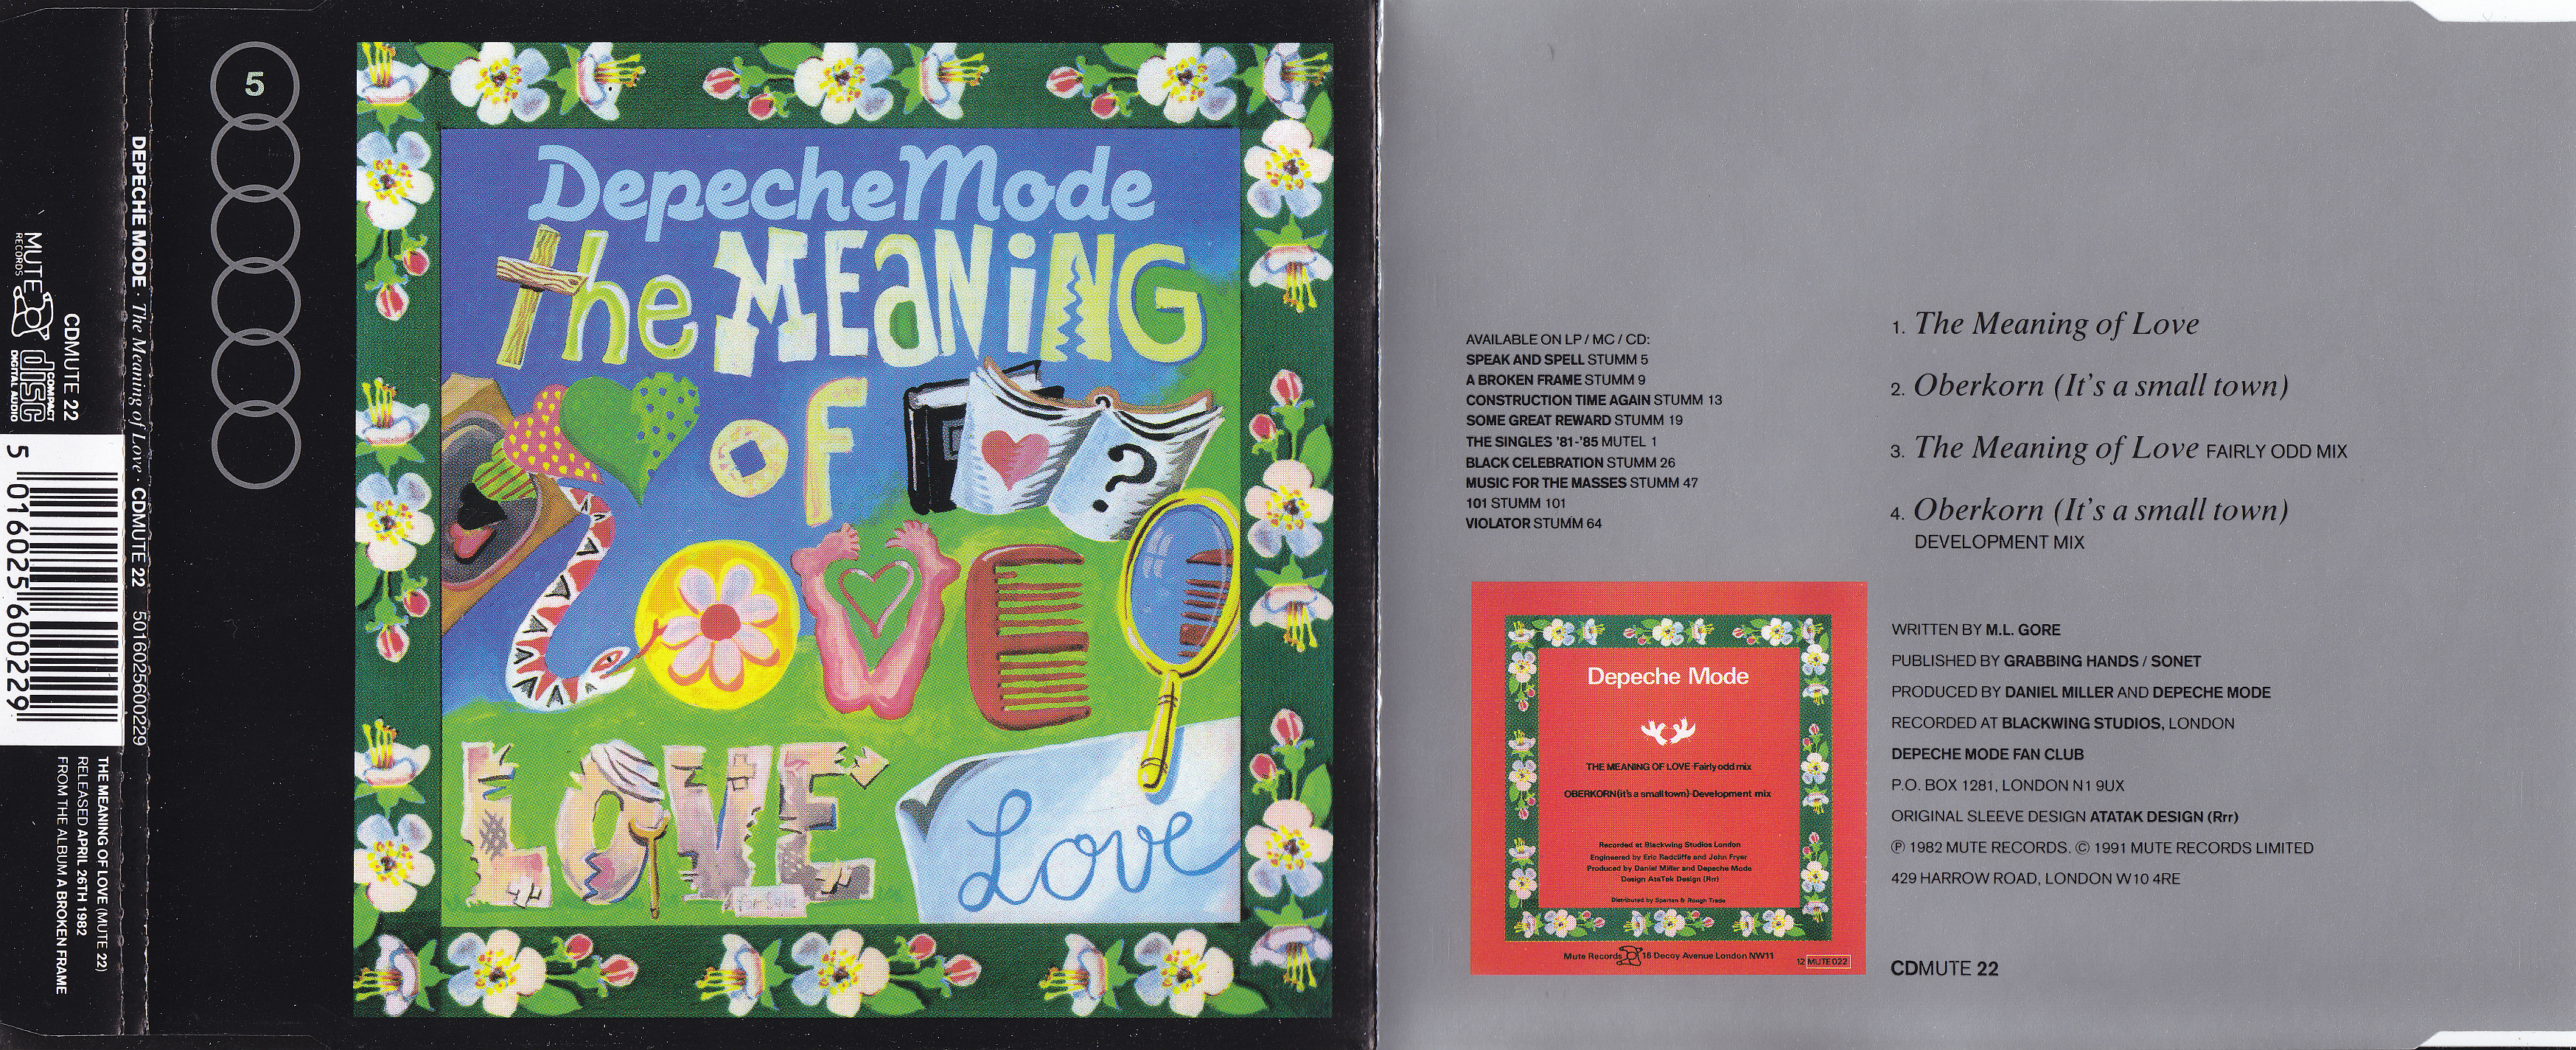 MUTE
RECORDS
COMPACT
disc
DIGITAL AUDIO
CDMUTE 22
5 016025 600229
THE MEANING OF LOVE (MUTE 22)
RELEASED APRIL 26TH 1982
FROM THE ALBUM A BROKEN FRAME
DEPECHE MODE · The Meaning of Love · CDMUTE 22 5016025600229
5
Depeche Mode
the MEaNiNG
oF
?
LOVE
LOVE
for sale
Love
AVAILABLE ON LP / MC / CD:
SPEAK AND SPELL STUMM 5
A BROKEN FRAME STUMM 9
CONSTRUCTION TIME AGAIN STUMM 13
SOME GREAT REWARD STUMM 19
THE SINGLES '81-'85 MUTEL 1
BLACK CELEBRATION STUMM 26
MUSIC FOR THE MASSES STUMM 47
101 STUMM 101
VIOLATOR STUMM 64
Depeche Mode
THE MEANING OF LOVE-Fairly odd mix
OBERKORN (it's a small town)-Development mix
Recorded at Blackwing Studios London
Engineered by Eric Radcliffe and John Fryer
Produced by Daniel Miller and Depeche Mode
Design AtaTak Design (Rrr)
Distributed by Spartan & Rough Trade
Mute Records 16 Decoy Avenue London NW11
12 MUTE 022
1. The Meaning of Love
2. Oberkorn (It's a small town)
3. The Meaning of Love FAIRLY ODD MIX
4. Oberkorn (It's a small town)
DEVELOPMENT MIX
WRITTEN BY M.L. GORE
PUBLISHED BY GRABBING HANDS / SONET
PRODUCED BY DANIEL MILLER AND DEPECHE MODE
RECORDED AT BLACKWING STUDIOS, LONDON
DEPECHE MODE FAN CLUB
P.O. BOX 1281, LONDON N1 9UX
ORIGINAL SLEEVE DESIGN ATATAK DESIGN (Rrr)
Ⓟ 1982 MUTE RECORDS. © 1991 MUTE RECORDS LIMITED
429 HARROW ROAD, LONDON W10 4RE
CDMUTE 22